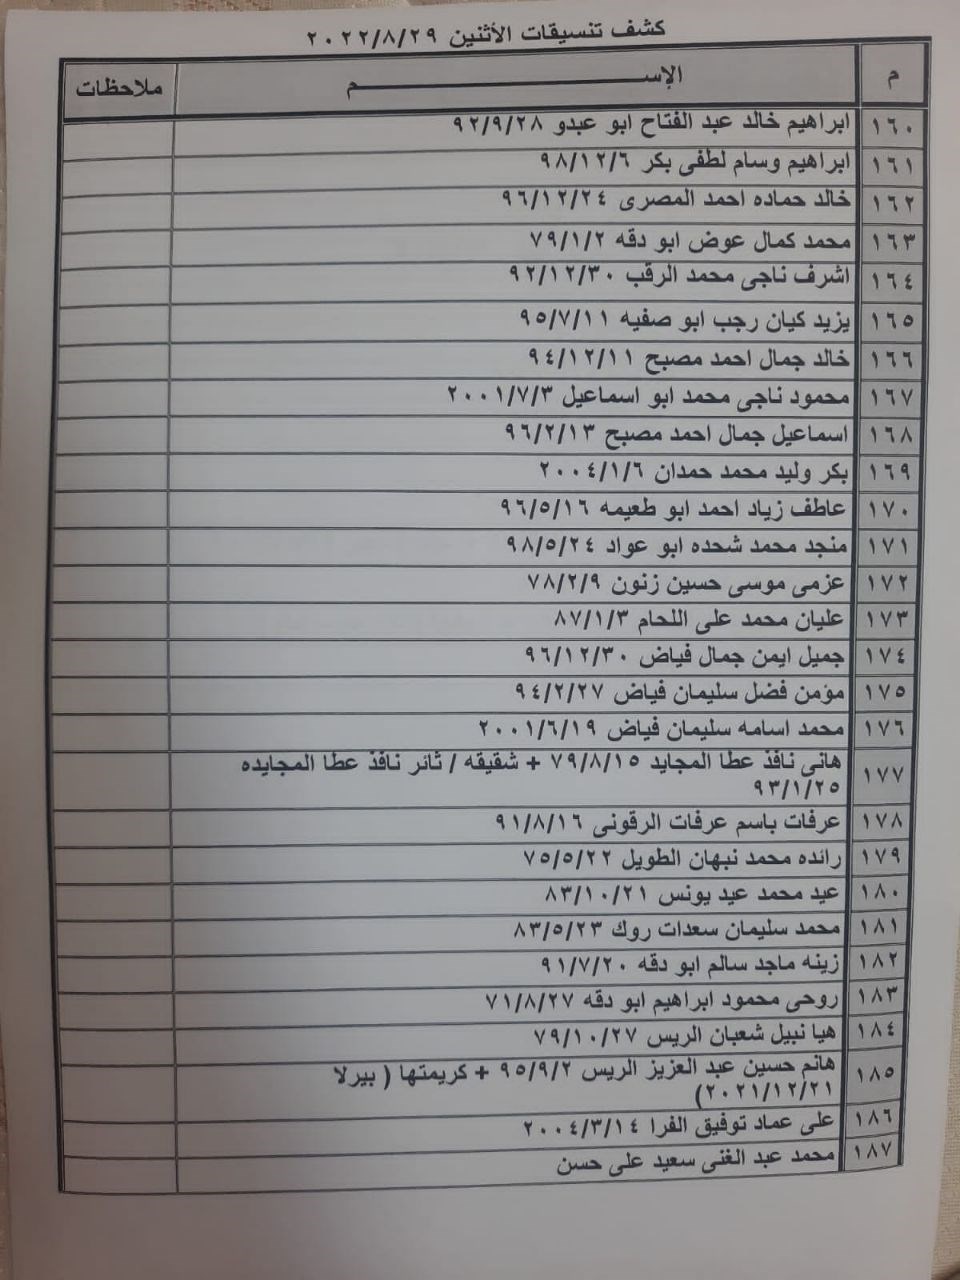 كشف تنسيقات الأثنين ٢٠٢٢/٨/٢٩
م الإســـــــــــــــم ملاحظات
١٦٠ ابراهيم خالد عبد الفتاح ابو عبدو ٩٢/٩/٢٨
١٦١ ابراهيم وسام لطفى بكر ٩٨/١٢/٦
١٦٢ خالد حماده احمد المصرى ٩٦/١٢/٢٤
١٦٣ محمد كمال عوض ابو دقه ٧٩/١/٢
١٦٤ اشرف ناجى محمد الرقب ٩٢/١٢/٣٠
١٦٥ يزيد كيان رجب ابو صفيه ٩٥/٧/١١
١٦٦ خالد جمال احمد مصبح ٩٤/١٢/١١
١٦٧ محمود ناجى محمد ابو اسماعيل ٢٠٠١/٧/٣
١٦٨ اسماعيل جمال احمد مصبح ٩٦/٢/١٣
١٦٩ بكر وليد محمد حمدان ٢٠٠٤/١/٦
١٧٠ عاطف زياد احمد ابو طعيمه ٩٦/٥/١٦
١٧١ منجد محمد شحده ابو عواد ٩٨/٥/٢٤
١٧٢ عزمى موسى حسين زنون ٧٨/٢/٩
١٧٣ عليان محمد على اللحام ٨٧/١/٣
١٧٤ جميل ايمن جمال فياض ٩٦/١٢/٣٠
١٧٥ مؤمن فضل سليمان فياض ٩٤/٢/٢٧
١٧٦ محمد اسامه سليمان فياض ٢٠٠١/٦/١٩
١٧٧ هانى نافذ عطا المجايد ٧٩/٨/١٥ + شقيقه / ثائر نافذ عطا المجايده
٩٣/١/٢٥
١٧٨ عرفات باسم عرفات الرقونى ٩١/٨/١٦
١٧٩ رائده محمد نبهان الطويل ٧٥/٥/٢٢
١٨٠ عيد محمد عيد يونس ٨٣/١٠/٢١
١٨١ محمد سليمان سعدات روك ٨٣/٥/٢٣
١٨٢ زينه ماجد سالم ابو دقه ٩١/٧/٢٠
١٨٣ روحى محمود ابراهيم ابو دقه ٧١/٨/٢٧
١٨٤ هيا نبيل شعبان الريس ٧٩/١٠/٢٧
١٨٥ هانم حسين عبد العزيز الريس ٩٥/٩/٢ + كريمتها ( بيرلا
٢٠٢١/١٢/٢١)
١٨٦ على عماد توفيق الفرا ٢٠٠٤/٣/١٤
١٨٧ محمد عبد الغنى سعيد على حسن